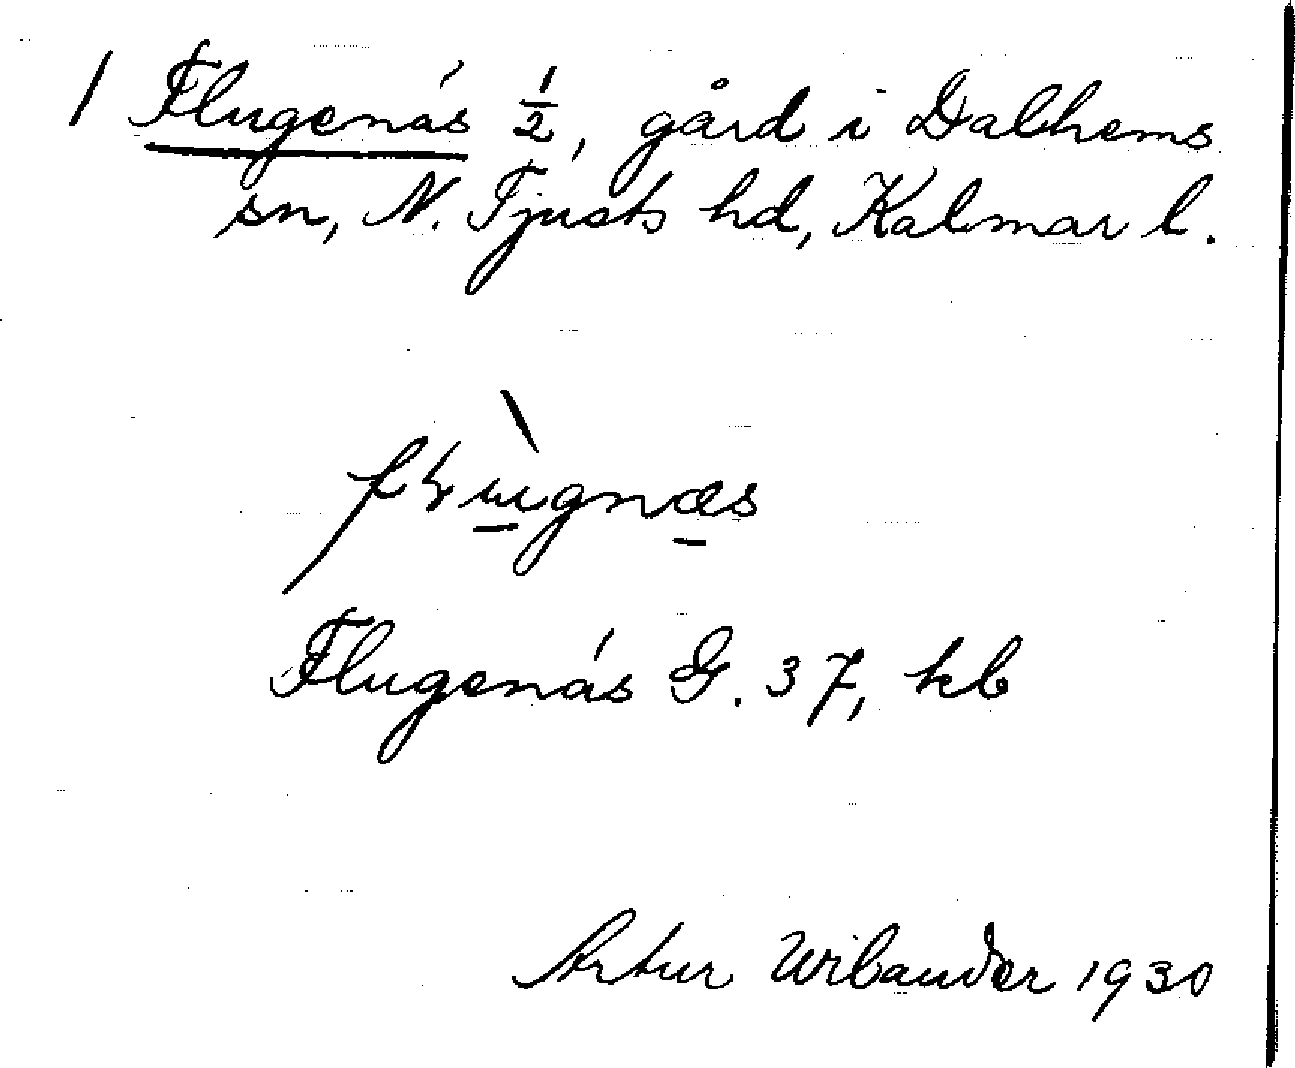 1 Flugenäs ½, gård i Dalhems
sn, N. Tjusts hd, Kalmar l.
Flugenäs G. 37, kb
Artur Wilander 1930